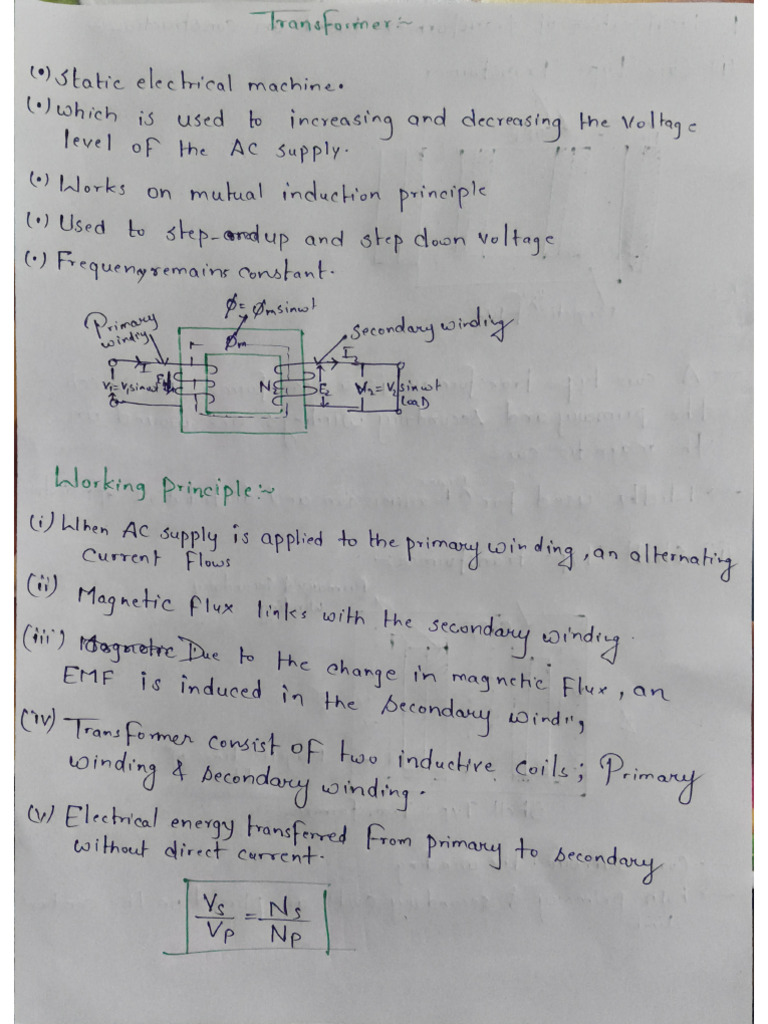 Transformer:~
(•) Static electrical machine.
(•) which is used to increasing and decreasing the voltage
level of the AC supply.
(•) Works on mutual induction principle
(•) Used to step-up and step down voltage
(•) Frequeny remains constant.
Ø = Øm sinωt
Primary
winding
Secondary winding
Øm
I
I2
V1 = V1 sinωt
N2
E2
V2 = V2 sinωt
LoaD
Working Principle:~
(i) When AC supply is applied to the primary winding, an alternating
Current Flows
(ii) Magnetic flux links with the secondary winding.
(iii) Due to the change in magnetic Flux, an
EMF is induced in the secondary windi
(iv) Transformer consist of two inductive coils; Primary
winding & secondary winding.
(v) Electrical energy transferred from primary to secondary
without direct current.
Vs/Vp = Ns/Np